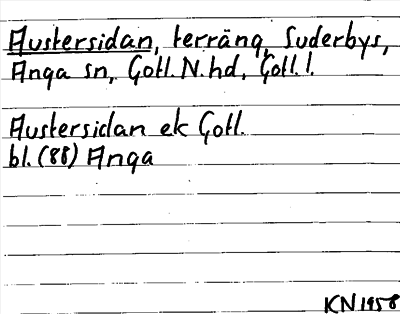 Austersidan, terräng, Suderbys,
Anga sn, Gotl. N. hd, Gotl. l.
Austersidan ek Gotl.
bl. (88) Anga
KN 1958